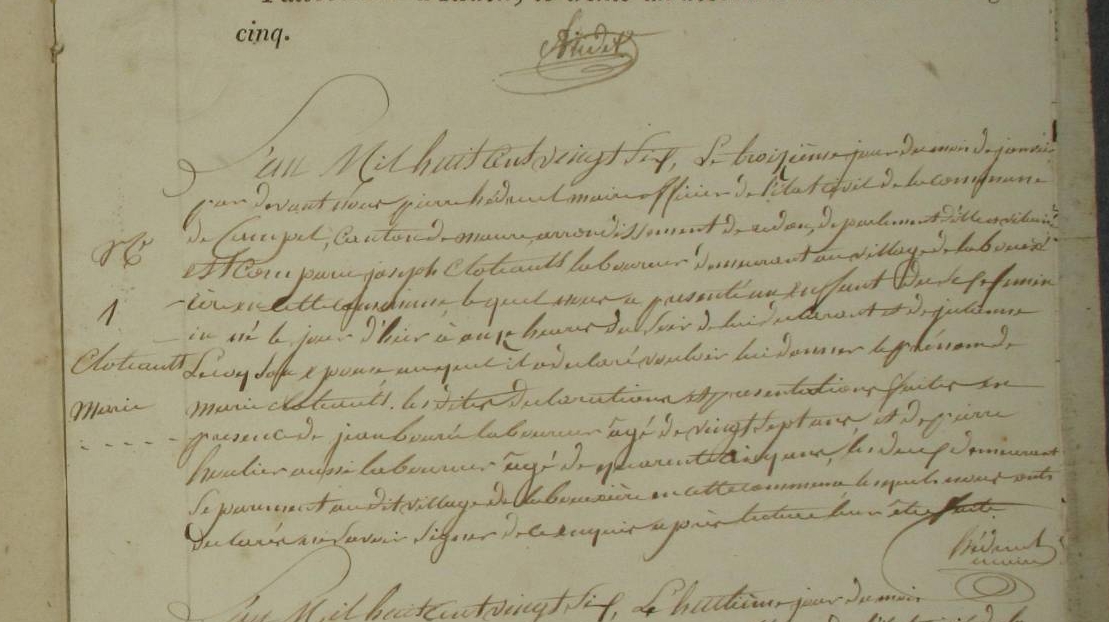 cinq.
L'an Mil huit cent vingt six, Le troizième jour du mois de janvier
par devant nous pierre hédreul maire officier de l'état civil de la commune
de Campel, Canton de maure, arrondissement de redon, departement d'ille et vilaine
est Comparu joseph Cloteault laboureur demeurant au village de la bouexi
ière en cette commune lequel nous a presenté un enfant du sexe femin
in né le jour d'hier à onze heures du soir de lui déclarant et de julienne
son epouse auquel il a declaré vouloir lui donner le prénom de
marie cloteault. les dites declarations et presentations faites en
presence de jean laboureur âgé de vingt sept ans, et de pierre
houlier aussi laboureur âgé de quarente cinq ans, les deux demeurant
séparement au dit village de la bouexière en cette commune lesquels nous ont
declarés ne savoir signer de ce enquis après lecture leur être faite
Ne
1
Cloteault
Marie
hédreul
maire
L'an Mil huit cent vingt six, Le huitième jour du mois